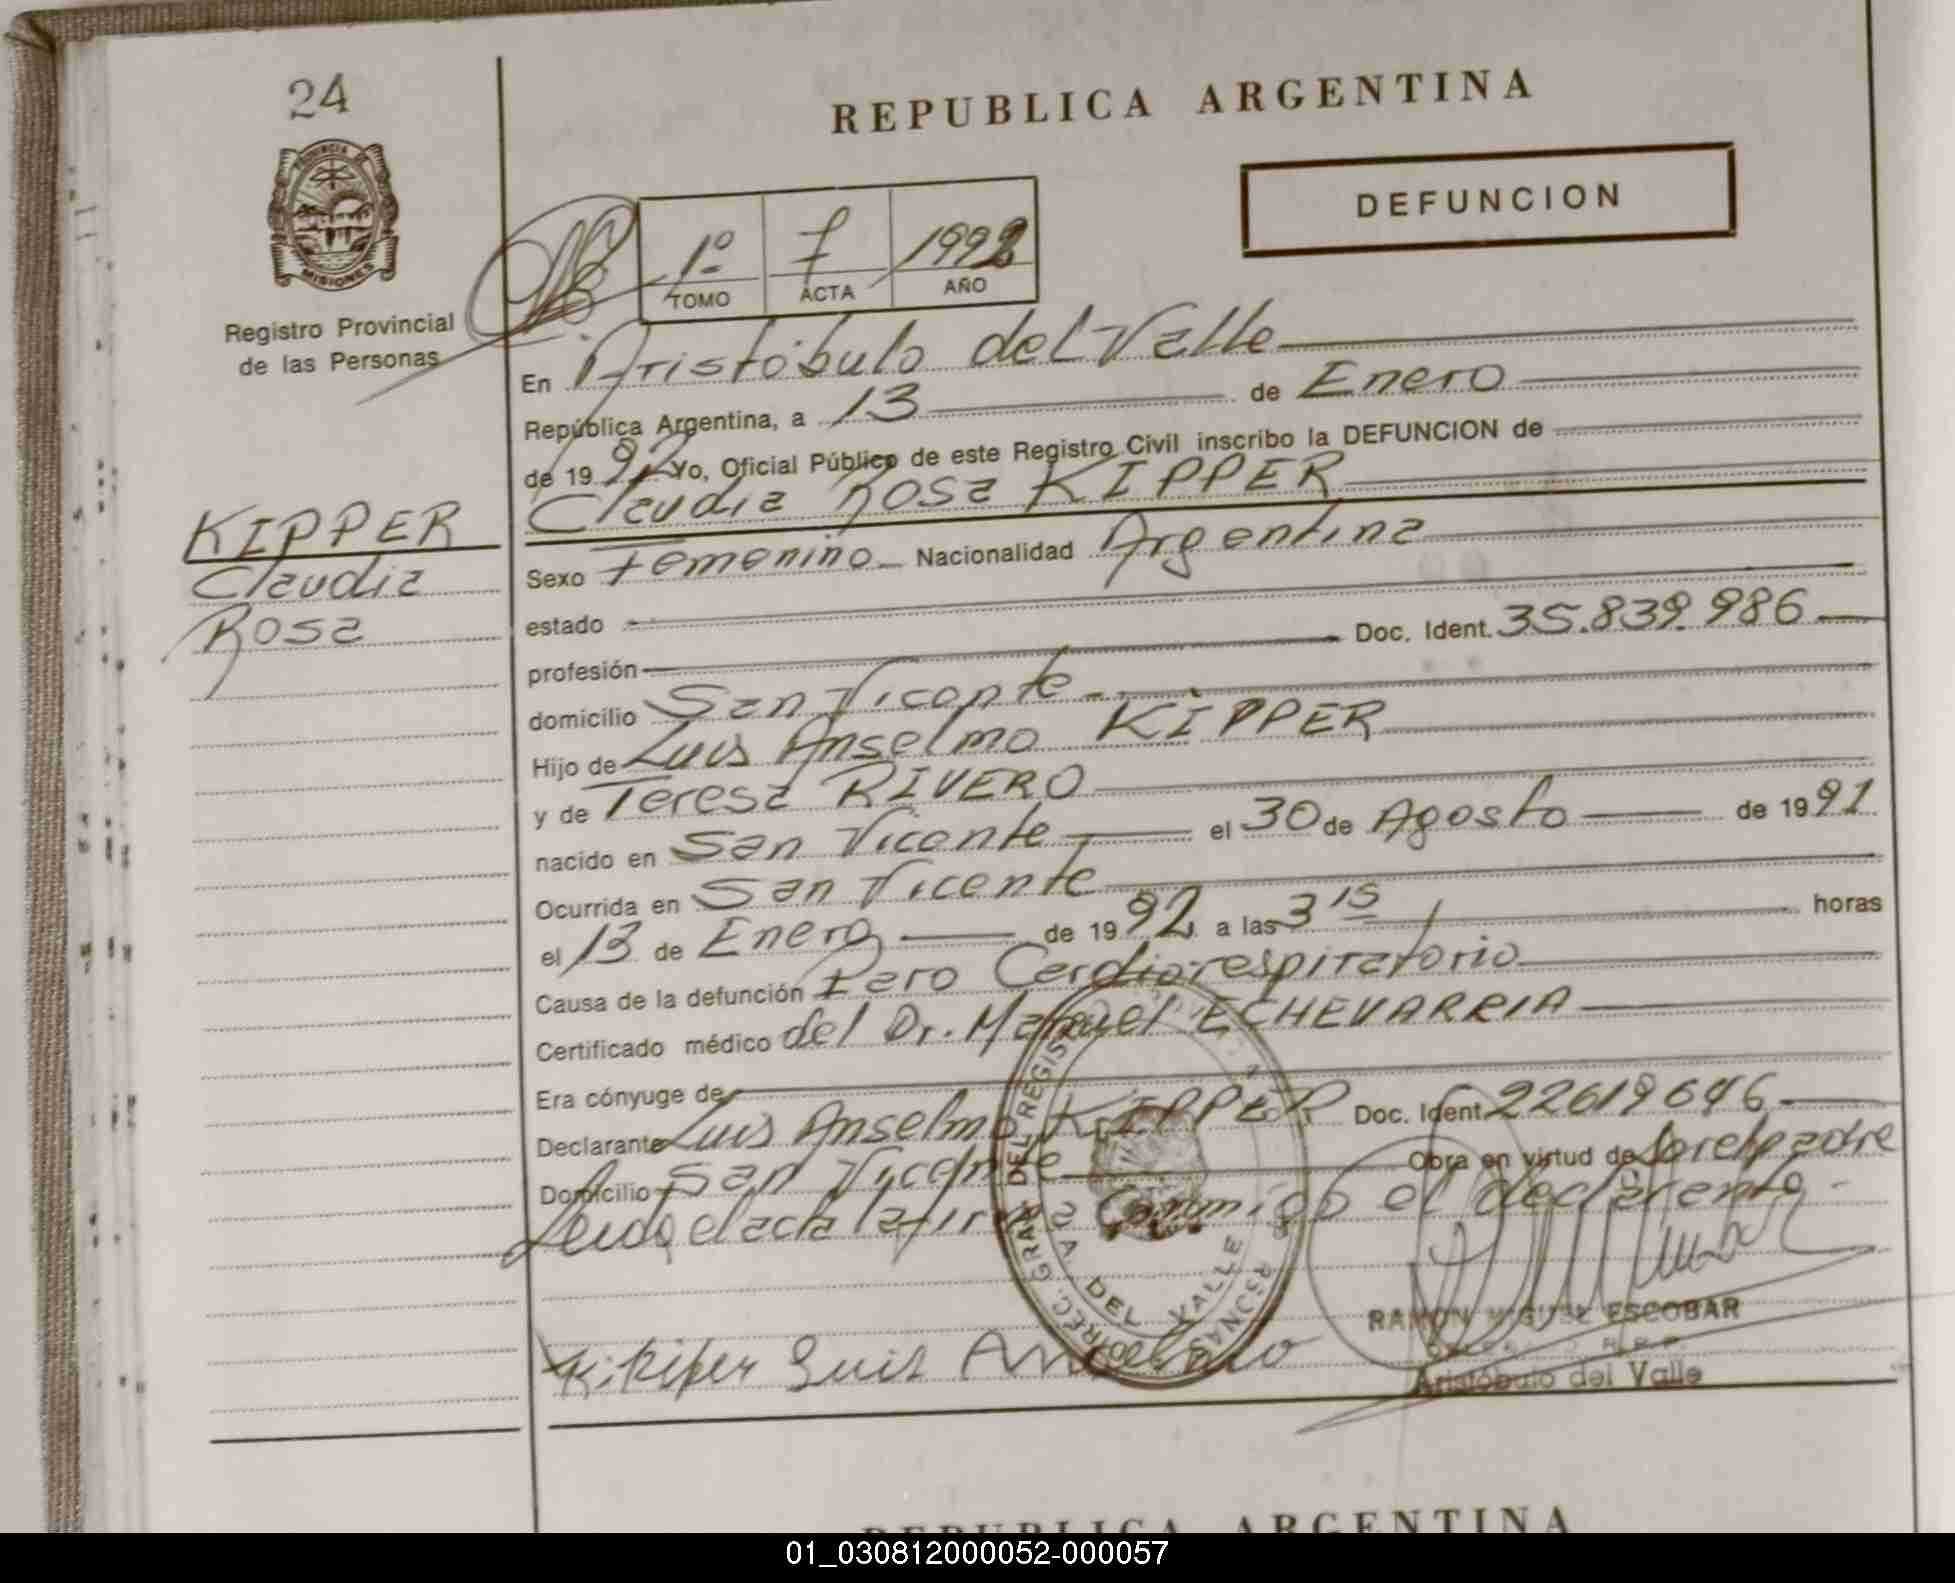 24
REPUBLICA ARGENTINA
DEFUNCION
PROVINCIA DE
MISIONES
Registro Provincial
de las Personas
1º 7 1992
TOMO ACTA AÑO
En Aristóbulo del Valle
República Argentina, a 13 de Enero
de 1992 Yo, Oficial Público de este Registro Civil inscribo la DEFUNCION de
Claudia Rosa KIPPER
KIPPER
Claudia
Rosa
Sexo Femenino Nacionalidad Argentina
estado
Doc. Ident. 35.839.986
profesión
domicilio San Vicente
Hijo de Luis Anselmo KIPPER
y de Teresa RIVERO
nacido en San Vicente el 30 de Agosto de 1991
Ocurrida en San Vicente
el 13 de Enero de 1992 a las 3 15 horas
Causa de la defunción Paro Cardiorespiratorio
Certificado médico del Dr. Manuel ECHEVARRIA
Era cónyuge de
Declarante Luis Anselmo KIPPER Doc. Ident. 22619646
Domicilio San Vicente Obra en virtud de ser el padre
Leida el acta la firma conmigo el declarante
DIREC. GRAL. DEL REGIST
DEL VALLE
RAMON MIGUEL ESCOBAR
Aristóbulo del Valle
Kipper Luis Anselmo
REPUBLICA ARGENTINA
01_030812000052-000057